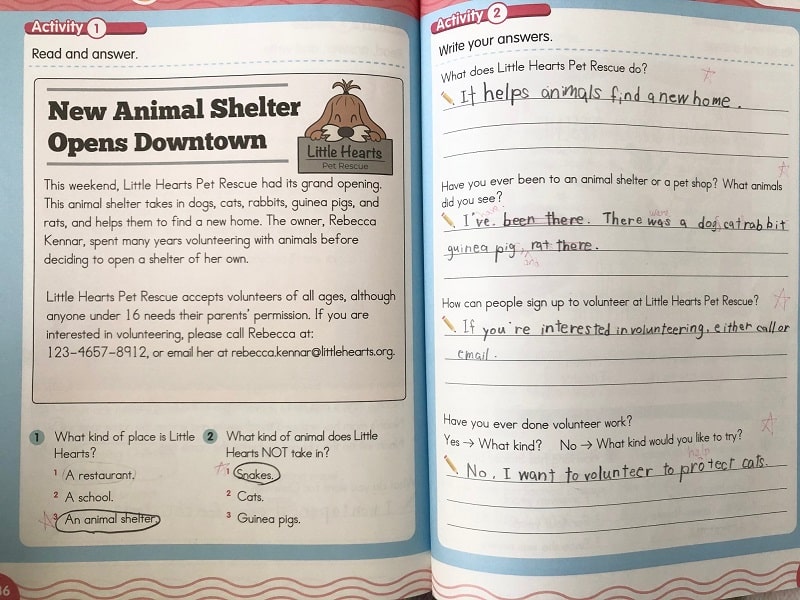 Activity 1
Read and answer.
New Animal Shelter
Opens Downtown
Little Hearts
Pet Rescue
This weekend, Little Hearts Pet Rescue had its grand opening.
This animal shelter takes in dogs, cats, rabbits, guinea pigs, and
rats, and helps them to find a new home. The owner, Rebecca
Kennar, spent many years volunteering with animals before
deciding to open a shelter of her own.
Little Hearts Pet Rescue accepts volunteers of all ages, although
anyone under 16 needs their parents' permission. If you are
interested in volunteering, please call Rebecca at:
123-4657-8912, or email her at rebecca.kennar@littlehearts.org.
1 What kind of place is Little
Hearts?
1 A restaurant.
2 A school.
3 An animal shelter.
2 What kind of animal does Little
Hearts NOT take in?
1 Snakes.
2 Cats.
3 Guinea pigs.
Activity 2
Write your answers.
What does Little Hearts Pet Rescue do?
It helps animals find a new home.
Have you ever been to an animal shelter or a pet shop? What animals
did you see?
were
I've been there. There was a dog, cat, rabbit
guinea pig, rat there.
and
How can people sign up to volunteer at Little Hearts Pet Rescue?
If you're interested in volunteering, either call or
email.
Have you ever done volunteer work?
Yes → What kind? No → What kind would you like to try?
help
No, I want to volunteer to protect cats.